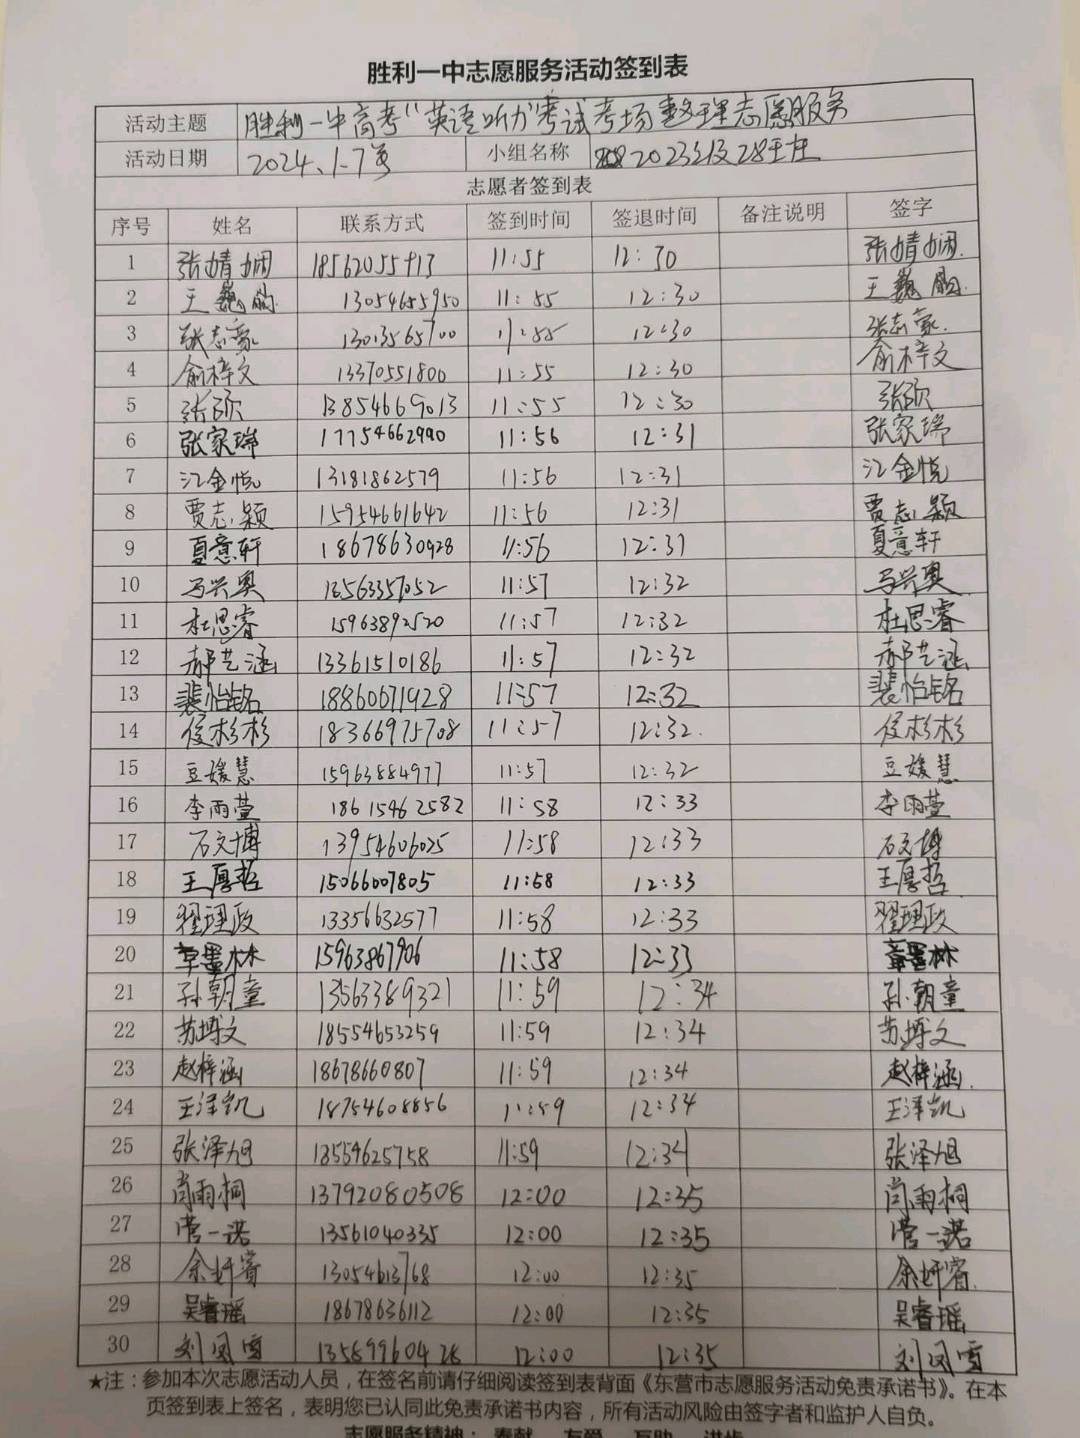 胜利一中志愿服务活动签到表
活动主题 胜利一中高考“英语听力”考试考场整理志愿服务
活动日期 2024.1.7 小组名称 2023级28班
志愿者签到表
序号 姓名 联系方式 签到时间 签退时间 备注说明 签字
1 张婧娴 18562055913 11:55 12:30 张婧娴
2 王巍 13054655950 11:55 12:30 王巍
3 张志豪 13013565700 11:55 12:30 张志豪
4 俞梓文 13370551800 11:55 12:30 俞梓文
5 张硕 13854669013 11:55 12:30 张硕
6 张家瑞 17754662990 11:56 12:31 张家瑞
7 江金悦 13181862579 11:56 12:31 江金悦
8 贾志颖 15954661642 11:56 12:31 贾志颖
9 夏意轩 18678630928 11:56 12:31 夏意轩
10 马兴奥 13563357052 11:57 12:32 马兴奥
11 杜思睿 15963892520 11:57 12:32 杜思睿
12 郝艺涵 13361510186 11:57 12:32 郝艺涵
13 裴怡铭 18860671928 11:57 12:32 裴怡铭
14 侯杉杉 18366975708 11:57 12:32 侯杉杉
15 豆媛慧 15963884977 11:57 12:32 豆媛慧
16 李雨萱 18615462582 11:58 12:33 李雨萱
17 石文博 13954606025 11:58 12:33 石文博
18 王厚哲 15066007805 11:58 12:33 王厚哲
19 翟理政 13356632577 11:58 12:33 翟理政
20 墨林 15963867906 11:58 12:33 墨林
21 孙朝童 13563389321 11:59 12:34 孙朝童
22 苏博文 18554653259 11:59 12:34 苏博文
23 赵梓涵 18678660807 11:59 12:34 赵梓涵
24 王泽凯 18754608856 11:59 12:34 王泽凯
25 张泽旭 18554625758 11:59 12:34 张泽旭
26 尚雨桐 13792080508 12:00 12:35 尚雨桐
27 一诺 13561040335 12:00 12:35 一诺
28 余妍睿 13054613768 12:00 12:35 余妍睿
29 吴睿瑶 18678636112 12:00 12:35 吴睿瑶
30 刘凤雪 13589960428 12:00 12:35 刘凤雪
★注：参加本次志愿活动人员，在签名前请仔细阅读签到表背面《东营市志愿服务活动免责承诺书》。在本
页签到表上签名，表明您已认同此免责承诺书内容，所有活动风险由签字者和监护人自负。
志愿服务精神：奉献 友爱 互助 进步